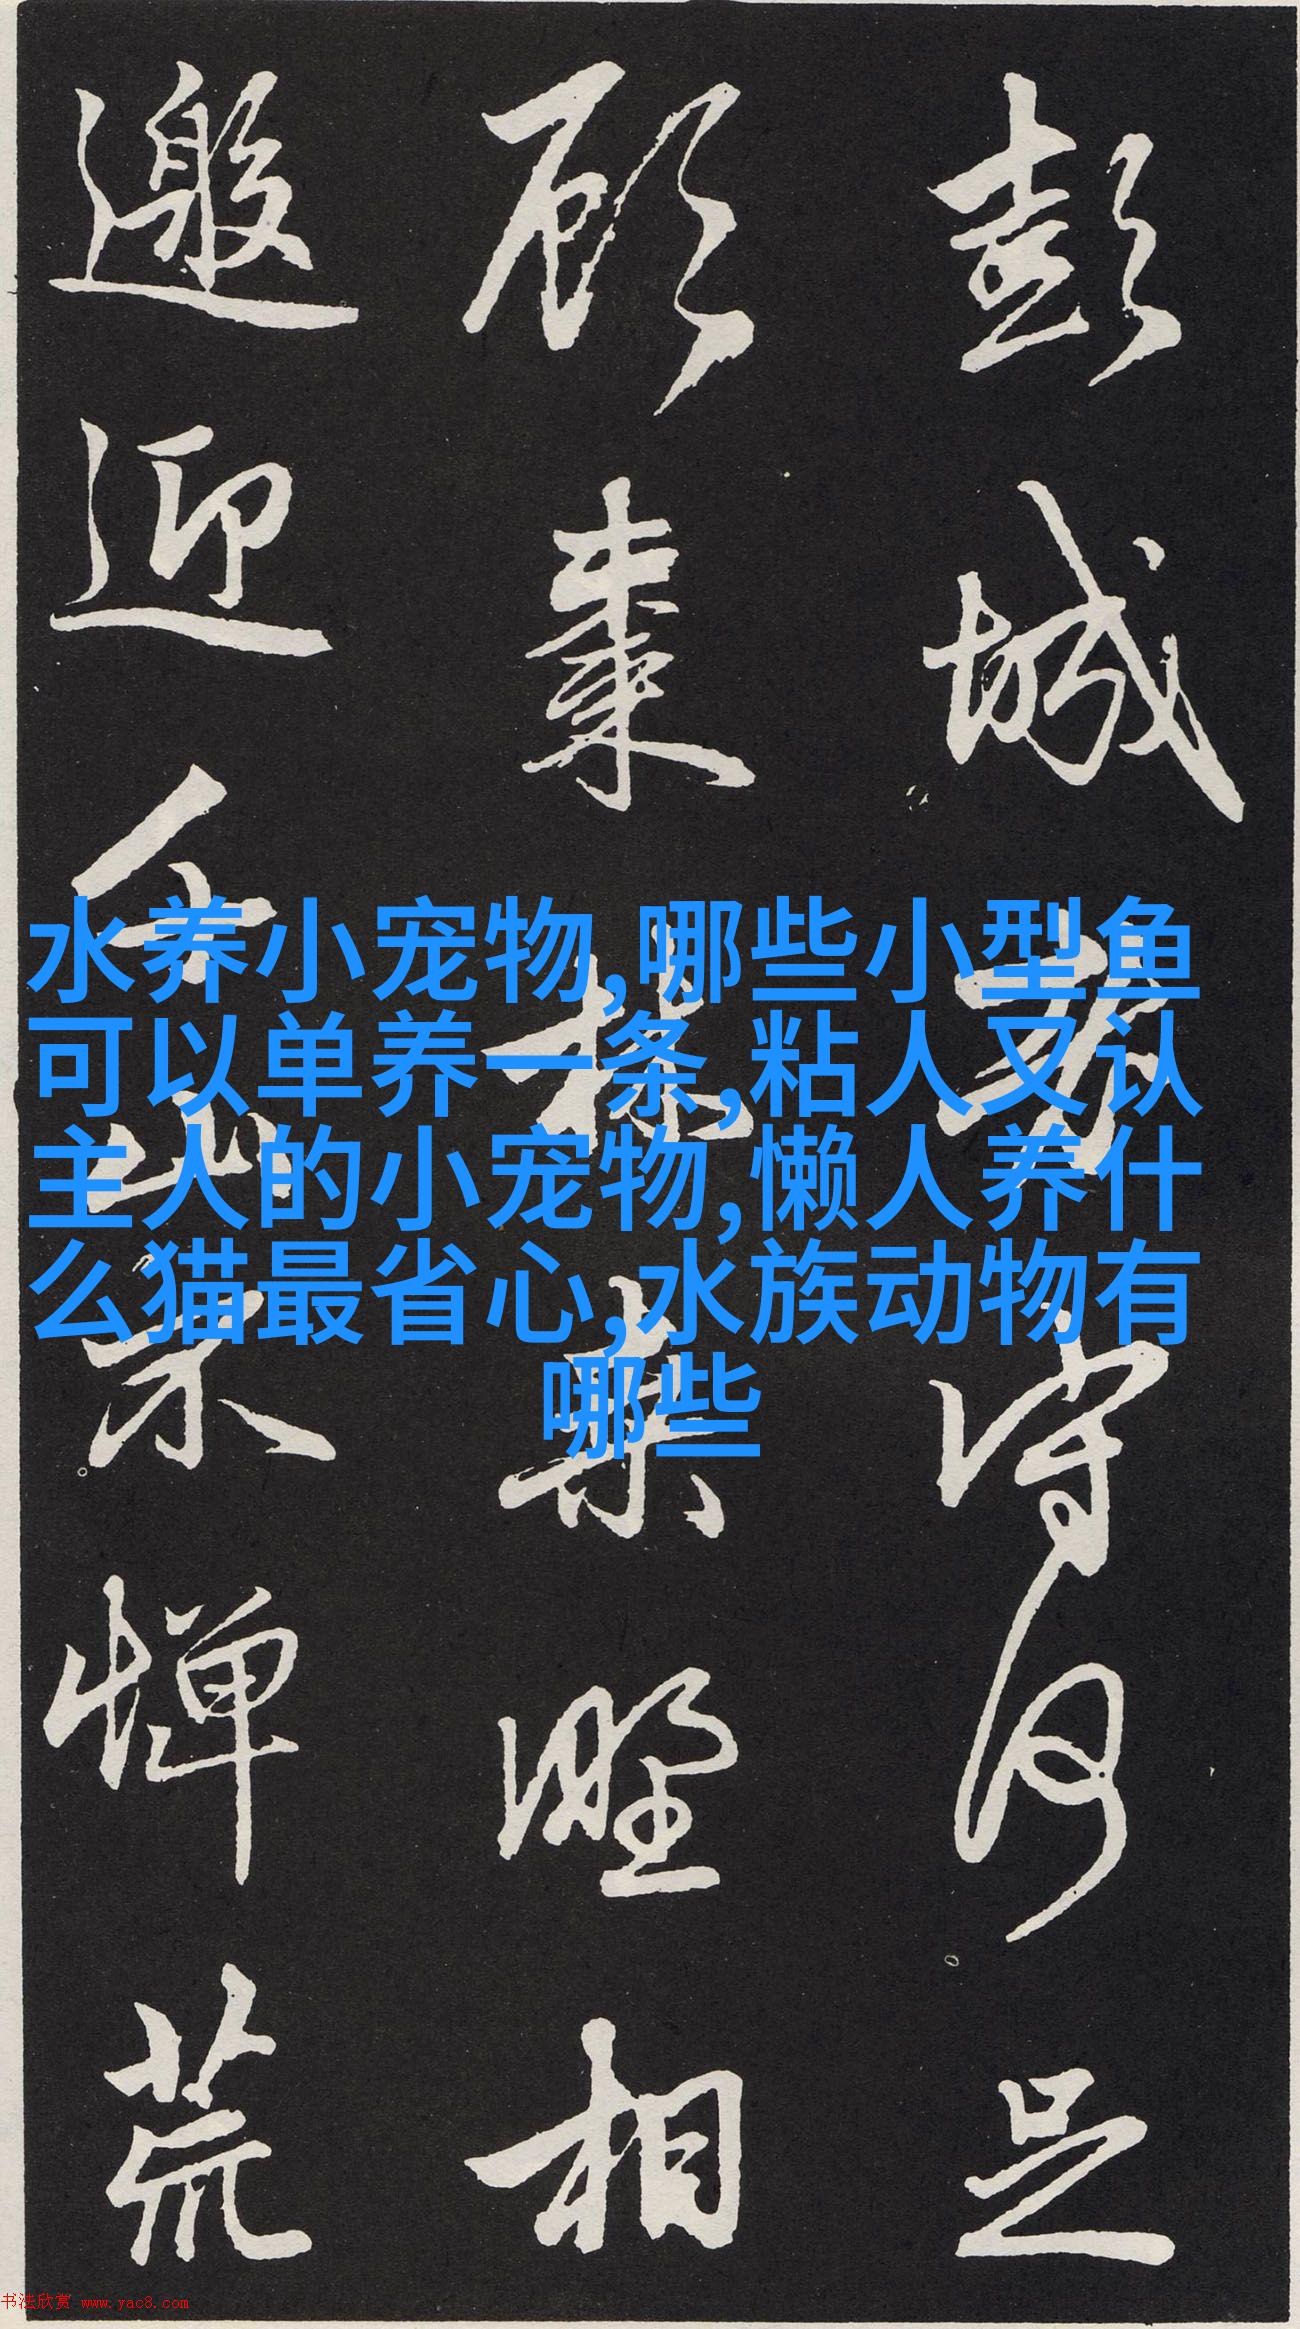 彭城老守何足
顧棗林桑野相
邀迎千山不憚荒
水养小宠物,哪些小型鱼
可以单养一条,粘人又认
主人的小宠物,懒人养什
么猫最省心,水族动物有
哪些
书法欣赏 www.yac8.com